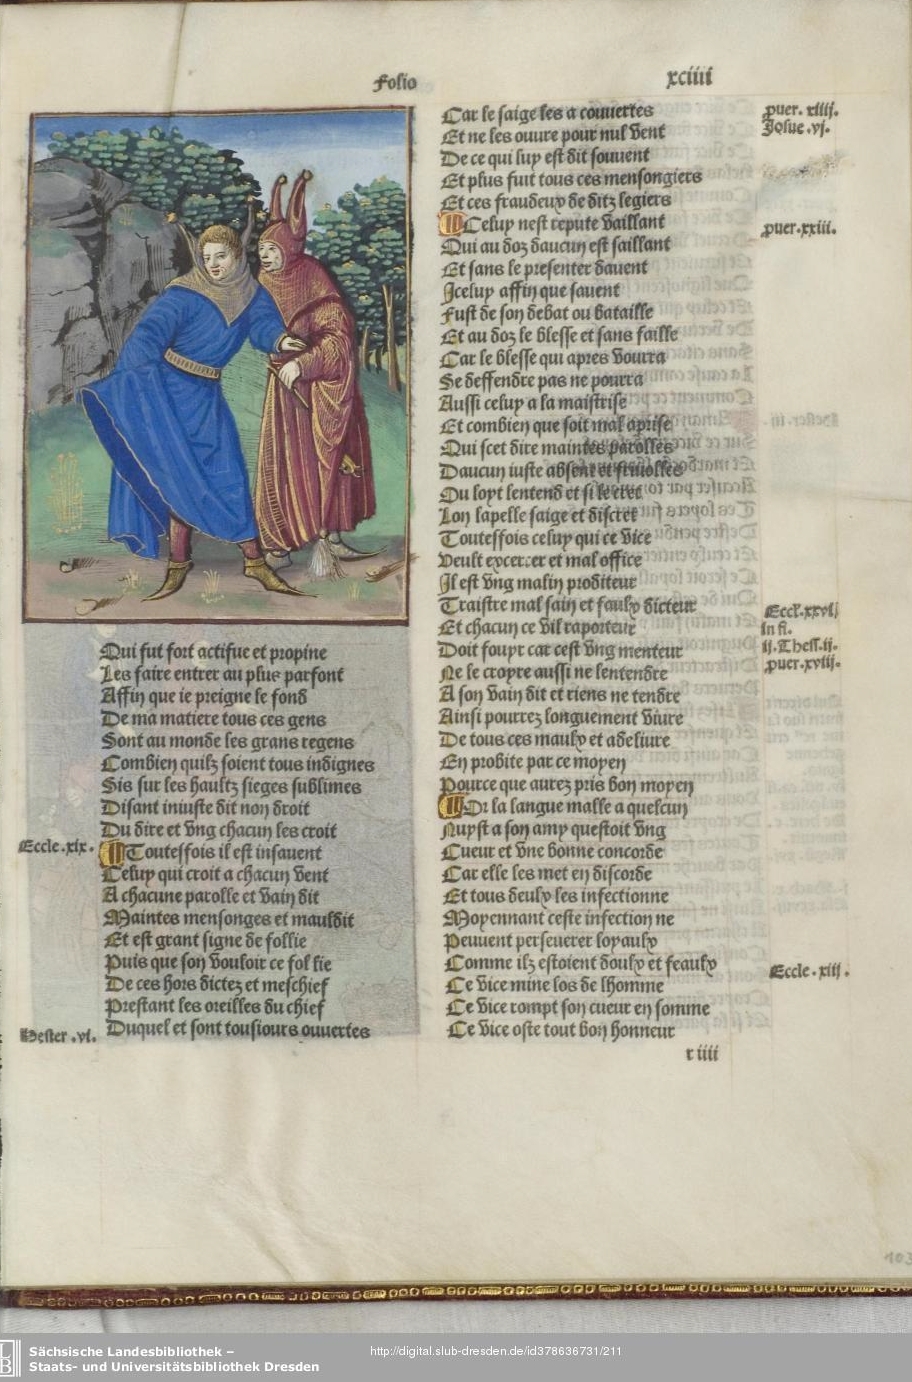 Folio
xciiii
Qui fut fort actifue et propine
Les faire entrer au plus parfont
Affin que ie preigne le fond
De ma matiere tous ces gens
Sont au monde les grans regens
Combien quilz soient tous indignes
Sis sur les haultz sieges sublimes
Disant iniuste dit non droit
Du dire et vng chacun les croit
Eccle.xix.
Toutesfois il est insauent
Celuy qui croit a chacun vent
A chacune parolle et vain dit
Maintes mensonges et mauldit
Et est grant signe de follie
Puis que son vouloir ce fol lie
De ces hors dictez et meschief
Prestant les oreilles du chief
Hester.vi.
Duquel et sont tousiours ouuertes
Car le saige les a couuertes
Et ne les ouure pour nul vent
De ce qui luy est dit souuent
Et plus fuit tous ces mensongiers
Et ces fraudeux de ditz legiers
Celuy nest repute vaillant
Qui au doz daucun est saillant
Et sans le presenter dauent
Iceluy affin que sauent
Fust de son debat ou bataille
Et au doz le blesse et sans faille
Car le blesse qui apres vourra
Se deffendre pas ne pourra
Aussi celuy a la maistrise
Et combien que soit mal aprise
Qui scet dire maintes parolles
Daucun iuste absent et friuolles
Ou loyt lentend et si le
Lon lapelle saige et discret
Toutesfois celuy qui ce vice
Veult excercer et mal office
Il est vng malin proditeur
Traistre mal sain et faulx dicteur
Et chacun ce vil raporteur
Doit fouyr car cest vng menteur
Ne le croyre aussi ne lentendre
A son vain dit et riens ne tendre
Ainsi pourrez longuement viure
De tous ces maulx et a deliure
En probite par ce moyen
Pource que aurez pris bon moyen
Or la langue malle a quelcun
Nuyst a son amy questoit vng
Cueur et vne bonne concorde
Car elle les met en discorde
Et tous deulx les infectionne
Moyennant ceste infection ne
Peuuent perseuerer loyaulx
Comme ilz estoient doulx et feaulx
Ce vice mine los de lhomme
Ce vice rompt son cueur en somme
Ce vice oste tout bon honneur
r iiii
puer. xiiii.
Iosue.vj.
puer.xxiii.
Eccl.xxvi.
in fi.
ij.Thess.ij.
puer.xviij.
Eccle.xiij.
103
Sächsische Landesbibliothek –
Staats- und Universitätsbibliothek Dresden
http://digital.slub-dresden.de/id378636731/211